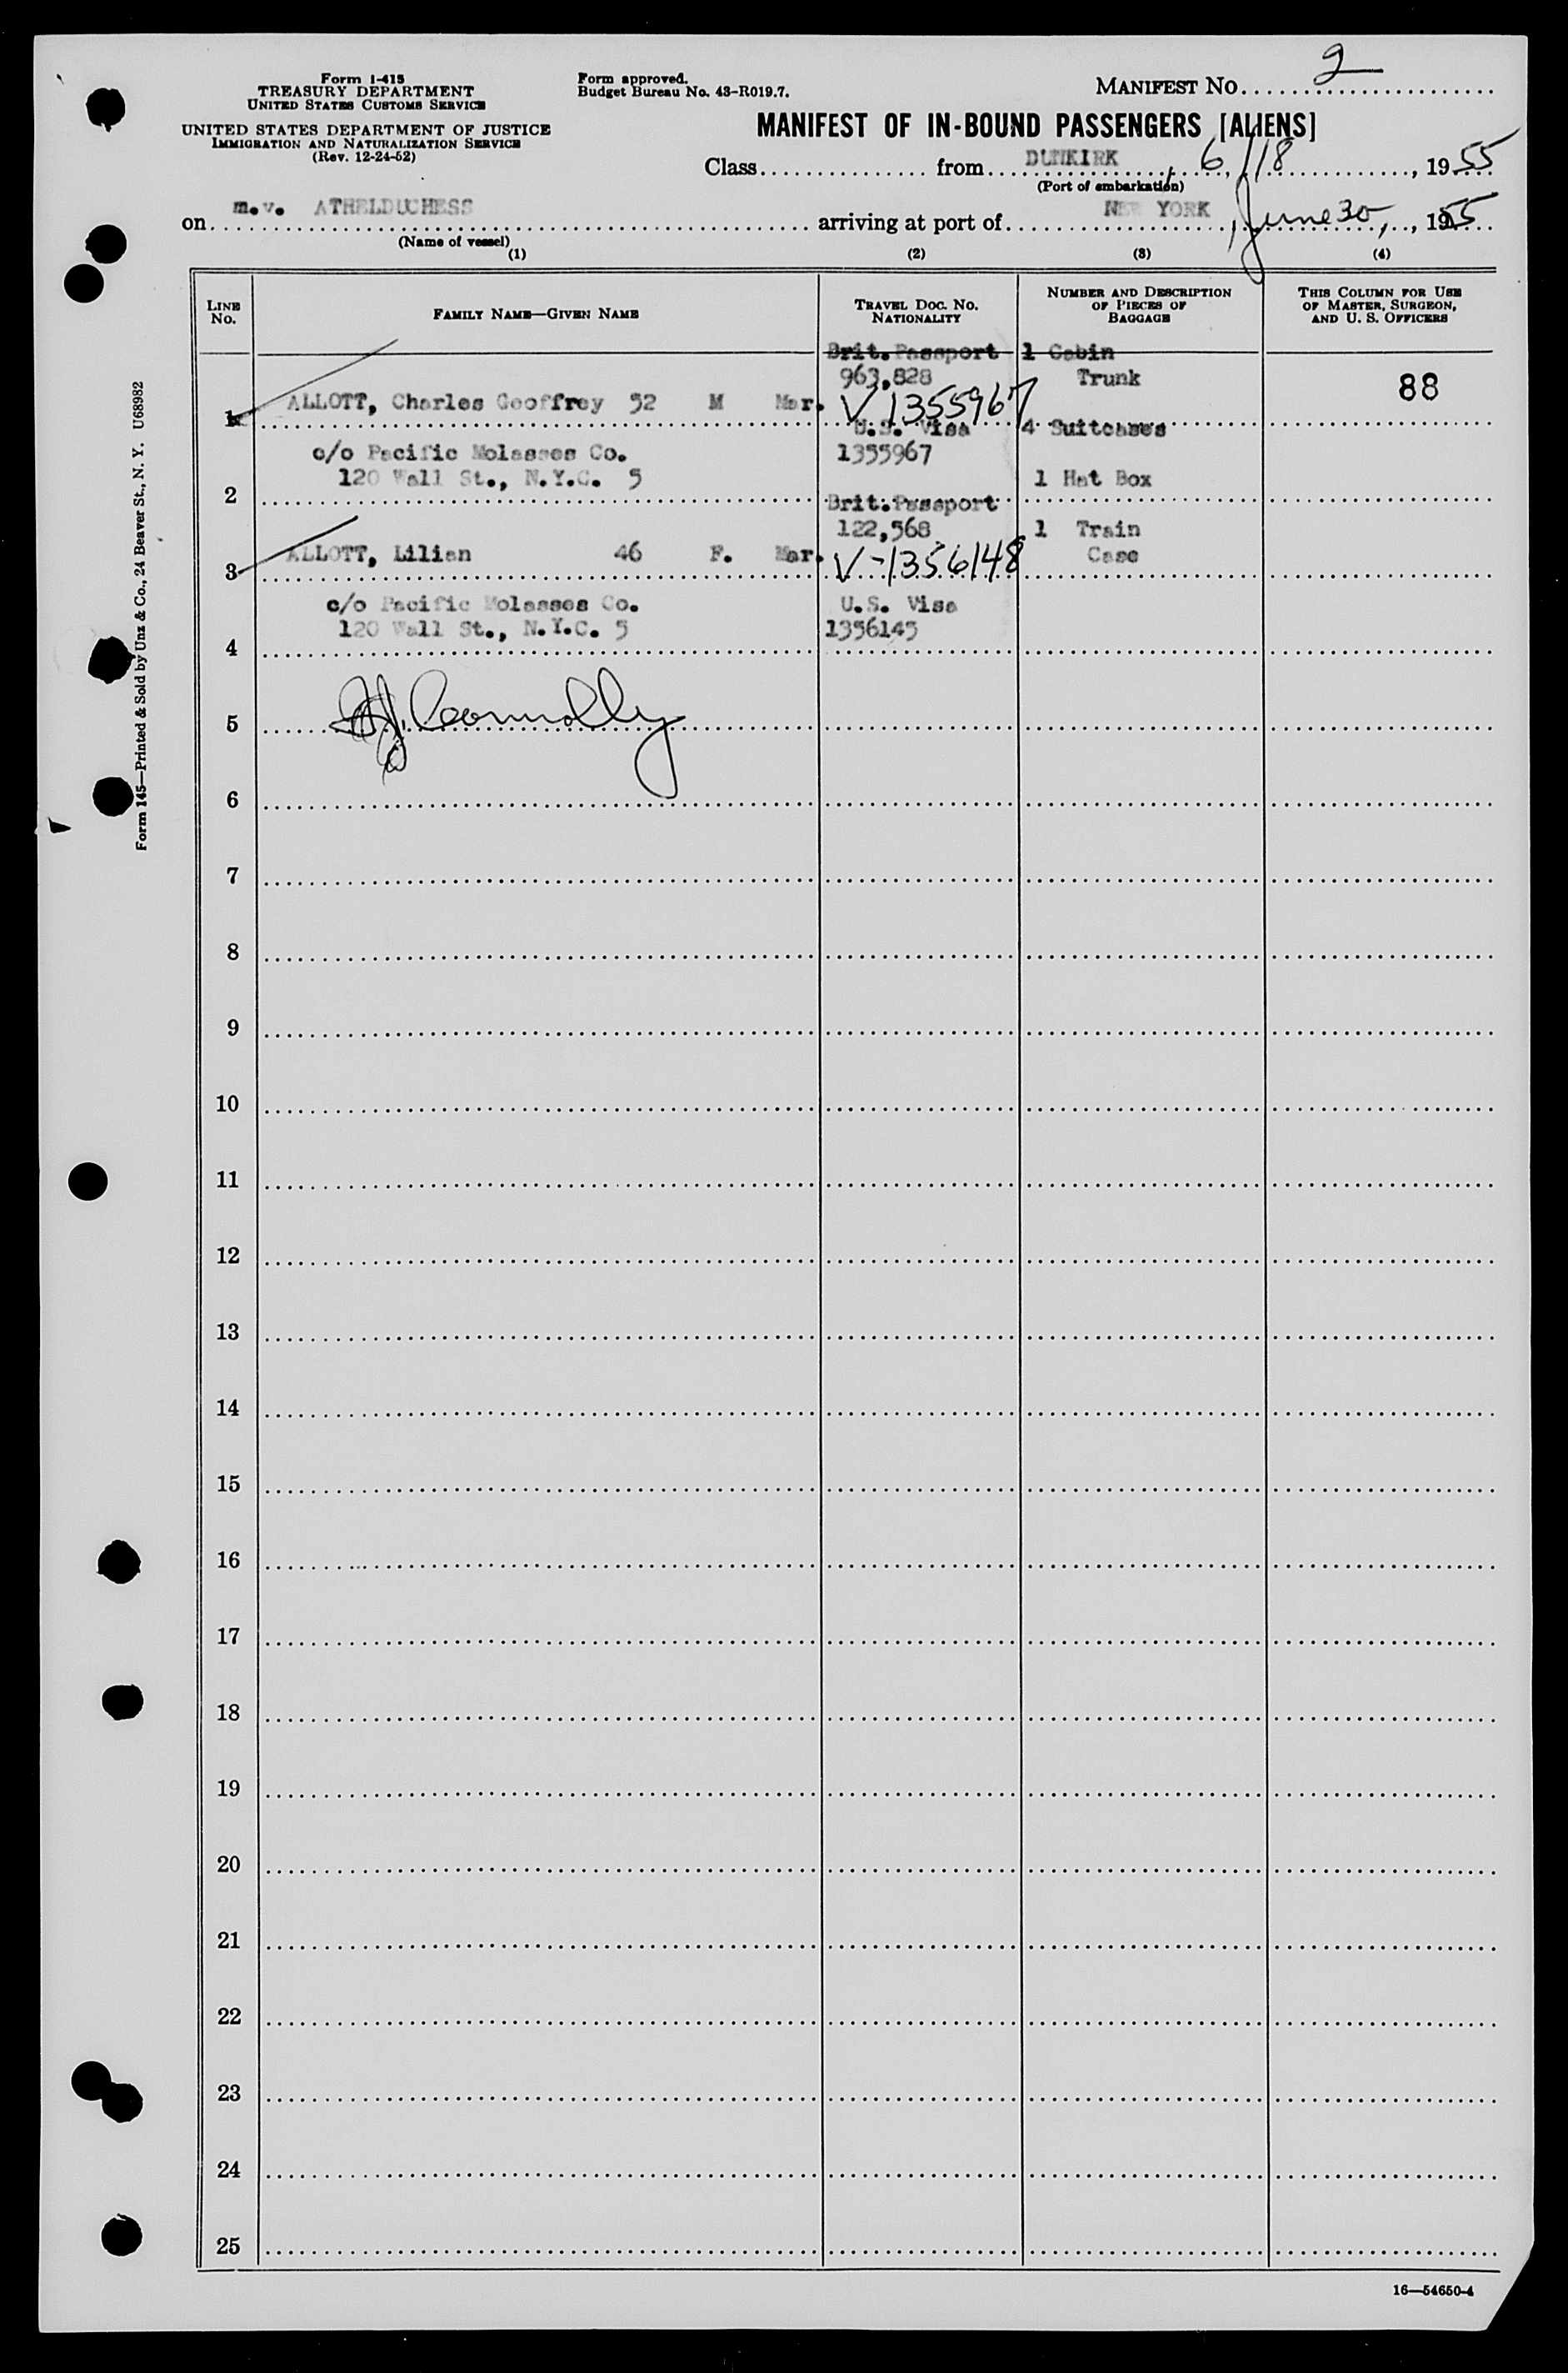 Form I-415
TREASURY DEPARTMENT
UNITED STATES CUSTOMS SERVICE
UNITED STATES DEPARTMENT OF JUSTICE
IMMIGRATION AND NATURALIZATION SERVICE
(Rev. 12-24-52)
Form approved.
Budget Bureau No. 43-R019.7.
MANIFEST NO. 2
MANIFEST OF IN-BOUND PASSENGERS [ALIENS]
Class from DUNKIRK, 6/18, 1955
(Port of embarkation)
on m.v. ATHELDUCHESS arriving at port of NEW YORK, June 30, 1955
(Name of vessel)
(1) (2) (3) (4)
LINE NO.
FAMILY NAME—GIVEN NAME
TRAVEL DOC. NO. NATIONALITY
NUMBER AND DESCRIPTION OF PIECES OF BAGGAGE
THIS COLUMN FOR USE OF MASTER, SURGEON, AND U. S. OFFICERS
Brit. Passport 1 Cabin
963,828 Trunk 88
1 ALLOTT, Charles Geoffrey 52 M Mar. V 1355967
U.S. Visa 4 Suitcases
c/o Pacific Molasses Co. 1355967
120 Wall St., N.Y.C. 5 1 Hat Box
2
Brit. Passport
122,568 1 Train
3 ALLOTT, Lilian 46 F. Mar. V-1356148 Case
c/o Pacific Molasses Co. U.S. Visa
120 Wall St., N.Y.C. 5 1356145
4
Connolly
5
6
7
8
9
10
11
12
13
14
15
16
17
18
19
20
21
22
23
24
25
16—54650-4
Form 145—Printed & Sold by Unz & Co., 24 Beaver St., N. Y. U68982